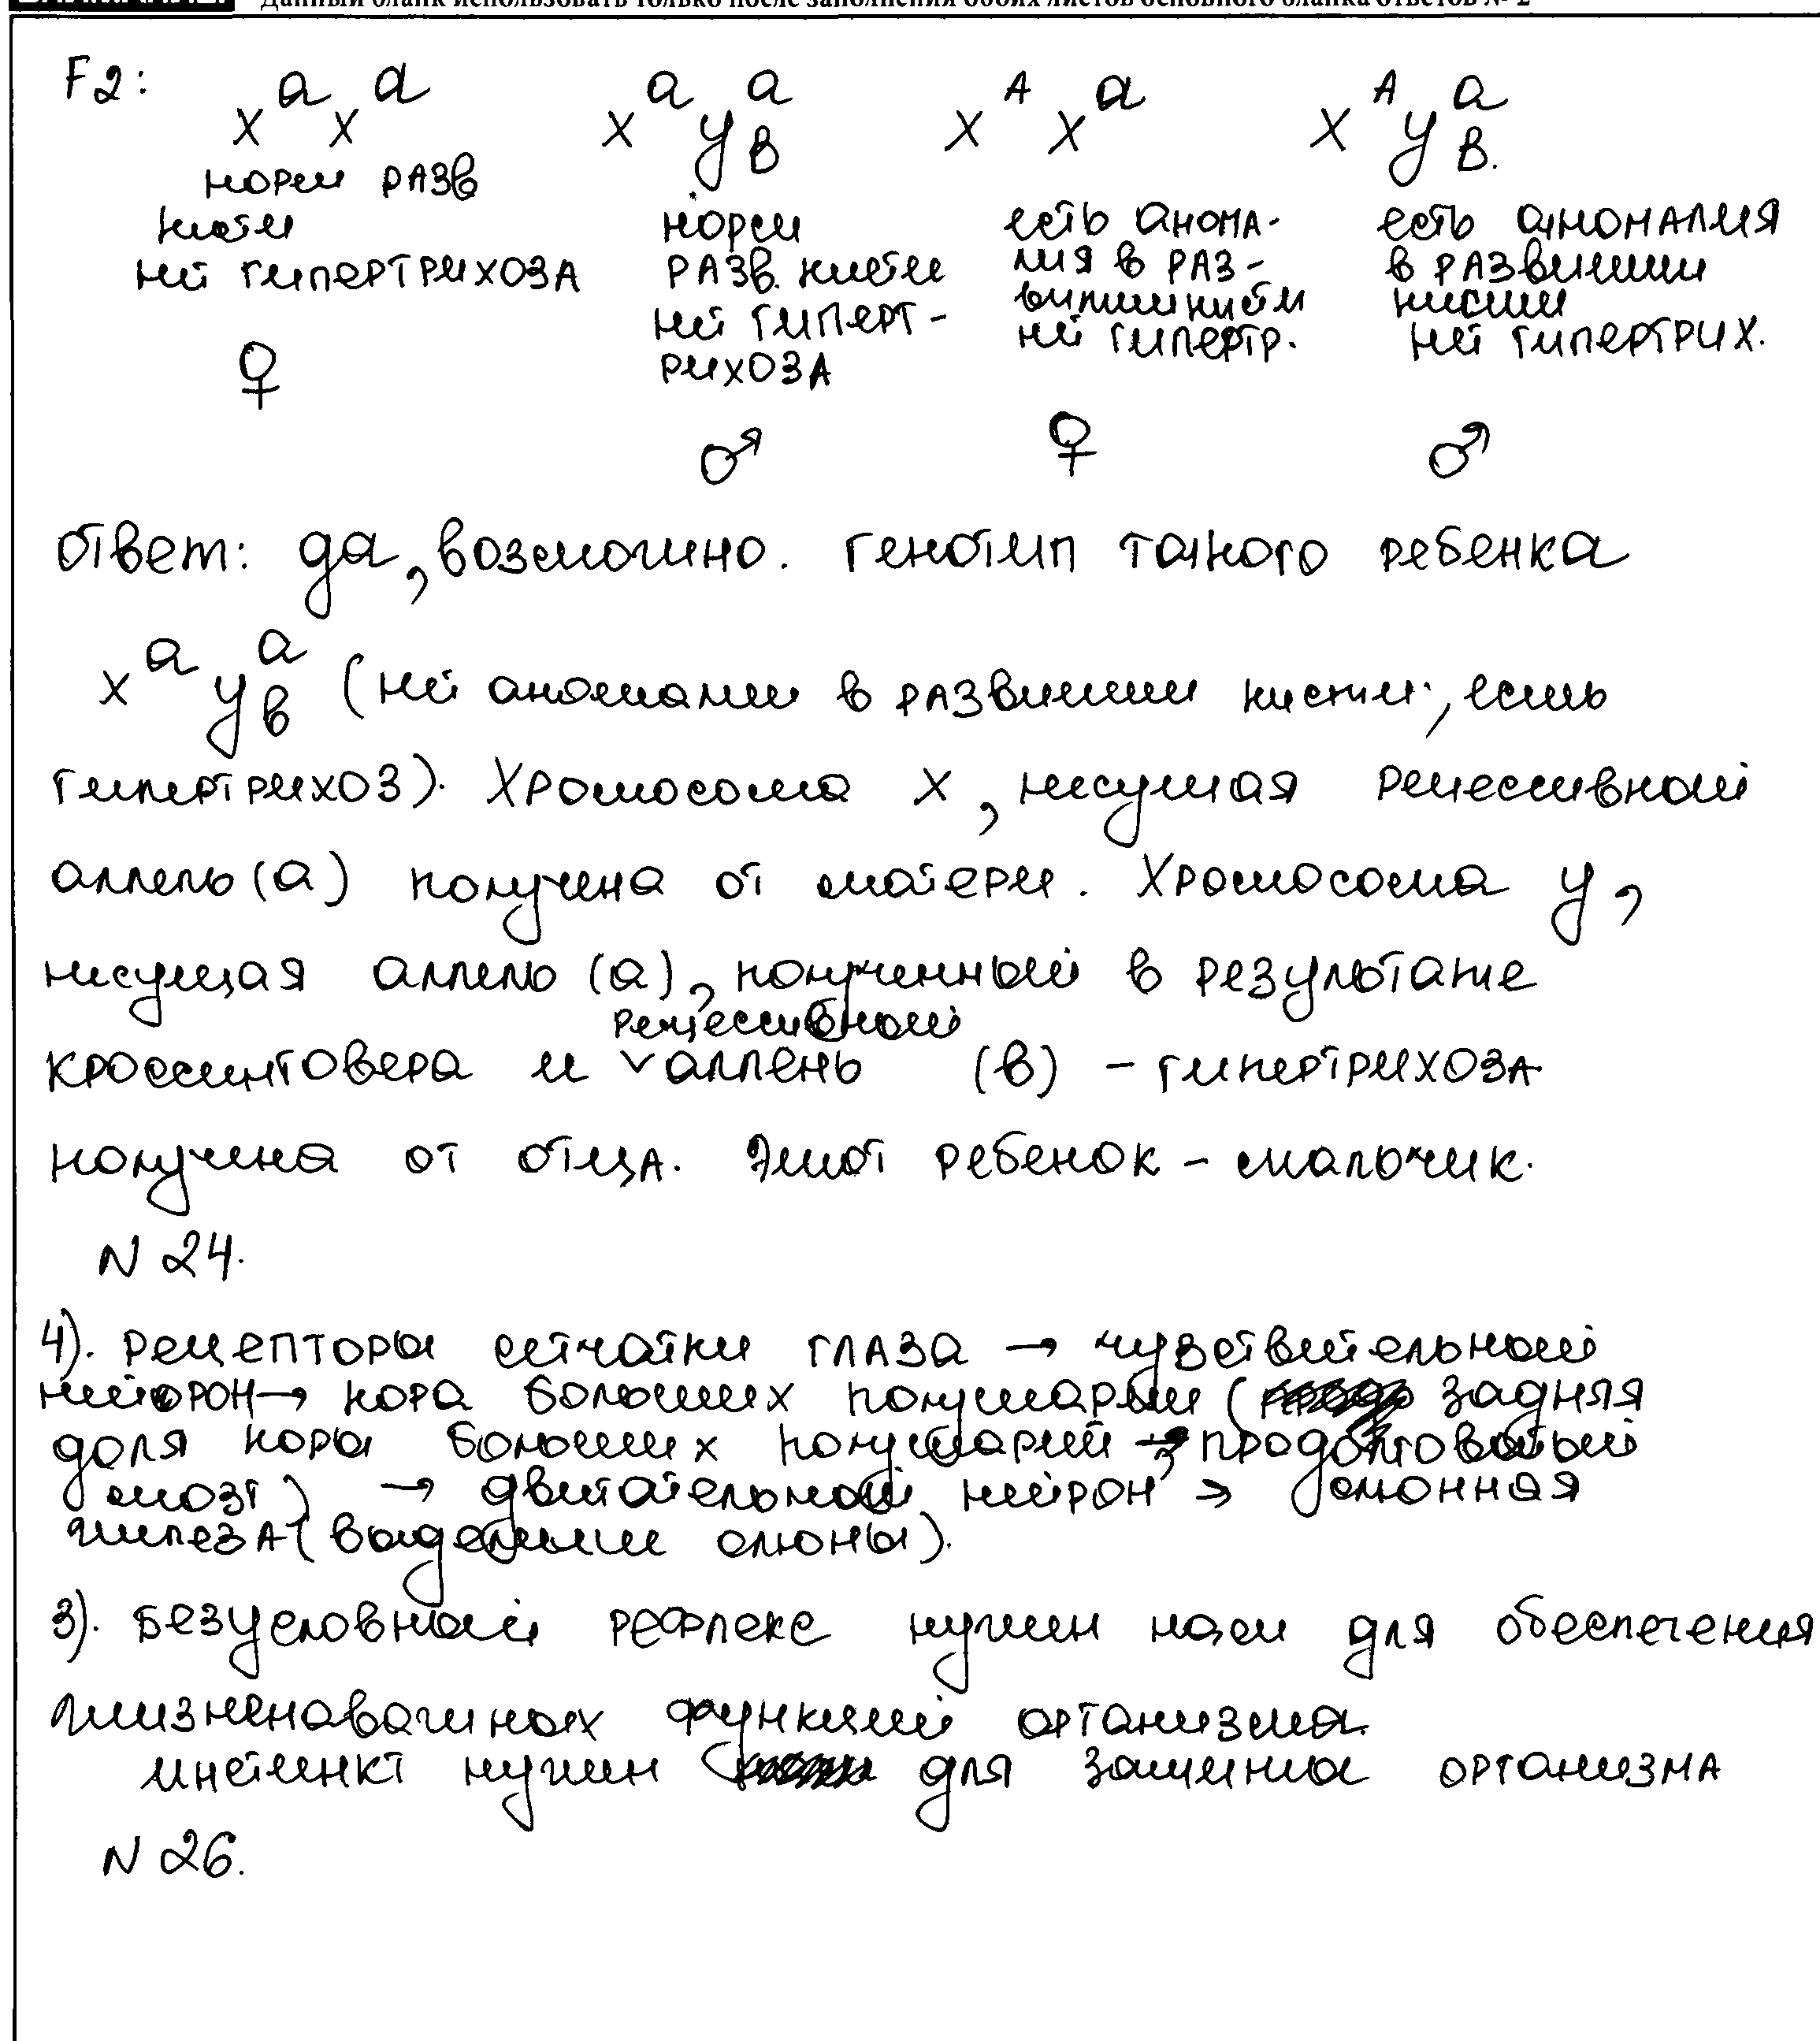 Данный бланк использовать только после заполнения обоих листов основного бланка ответов № 2
F2: x^a x^a x^a y^a_в x^A x^a x^A y^a_в.
норм разв норм есть анома- есть аномалия
кисти разв. кисти лия в раз- в развитии
нет гипертрихоза нет гиперт- витии кисти кисти
рихоза нет гипертр. нет гипертрих.
♀ ♂ ♀ ♂
Ответ: да, возможно. Генотип такого ребенка
x^a y^a_в (нет аномалии в развитии кисти, есть
гипертрихоз). Хромосома X, несущая рецессивный
аллель (а) получена от матери. Хромосома У,
несущая аллель (а), полученный в результате
рецессивный
кроссинговера и ∨аллень (в) - гипертрихоза
получена от отца. Этот ребенок - мальчик.
N 24.
4). Рецепторы сетчатки глаза → чувствительный
нейрон → кора больших полушарий ( задняя
доля коры больших полушарий → продолговатый
мозг) → двигательный нейрон → слюнная
железа (выделении слюны).
3). Безусловный рефлекс нужен нам для обеспечения
жизненоважных функций организма
инстинкт нужен для защиты организма
N 26.